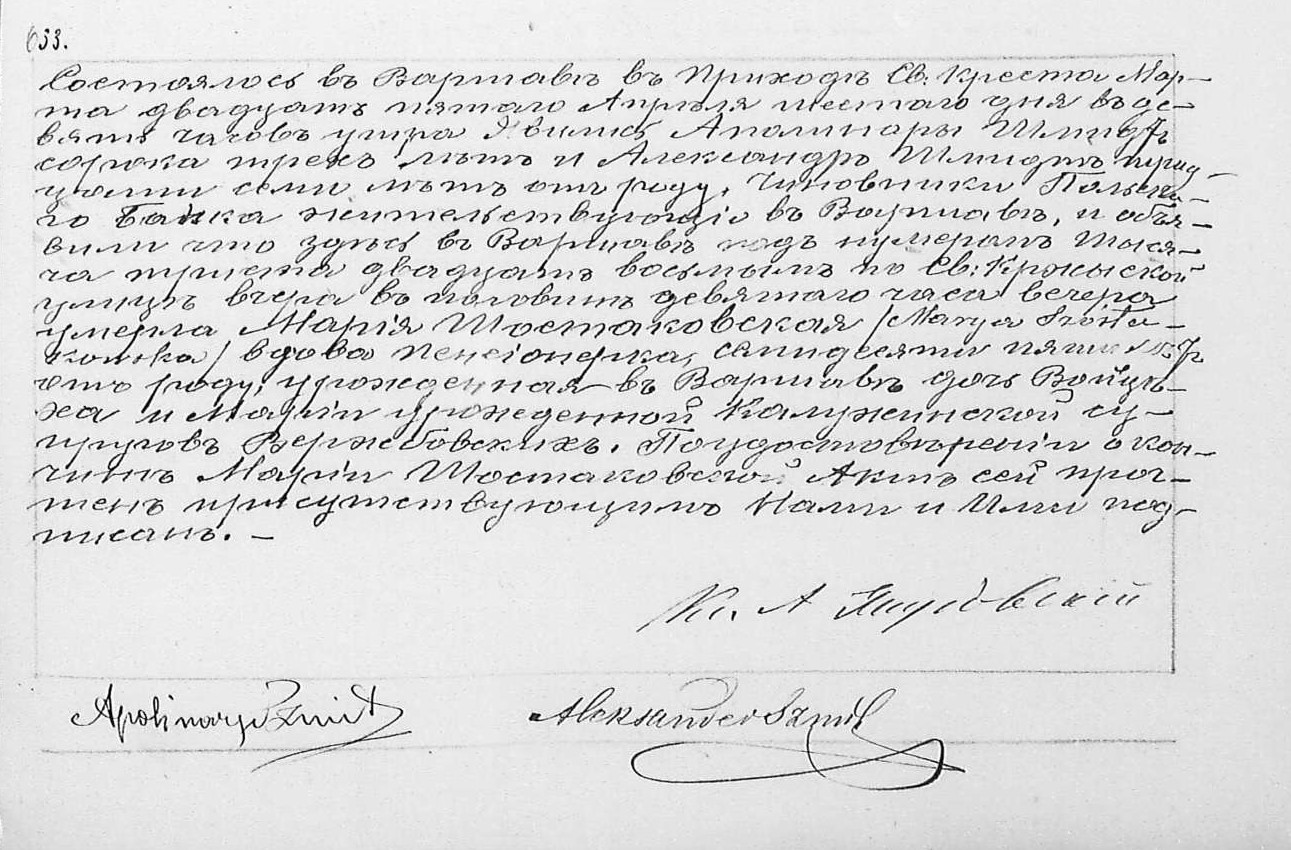 633.
Состоялось въ Варшавѣ въ Приходѣ Св. Креста Мар-
та двадцать пятаго Апрѣля шестаго дня въ де-
вять часовъ утра Явились Аполинары Шмидтъ
сорока трехъ лѣтъ и Александръ Шмидтъ трид-
цати семи лѣтъ отъ роду, Чиновники Польска-
го Банка жительствующіе въ Варшавѣ, и объя-
вили что здѣсь въ Варшавѣ подъ нумеромъ тыся-
ча триста двадцать восьмымъ по Св: Кржыской
улицѣ вчера въ половинѣ девятаго часа вечера
умерла Марія Шостаковская /Marya Szosta-
kowska/ вдова пенсіонерка, семидесяти пяти лѣтъ
отъ роду, урожденная въ Варшавѣ дочь Войцѣ-
ха и Маріи урожденной Калужинской су-
пруговъ Вержбовскихъ. По удостовѣреніи о кон-
чинѣ Маріи Шостаковской Актъ сей проч-
тенъ присутствующимъ Нами и Ими под-
писанъ. —
Кс. А
Apolinary Szmidt
Aleksander Szmidt